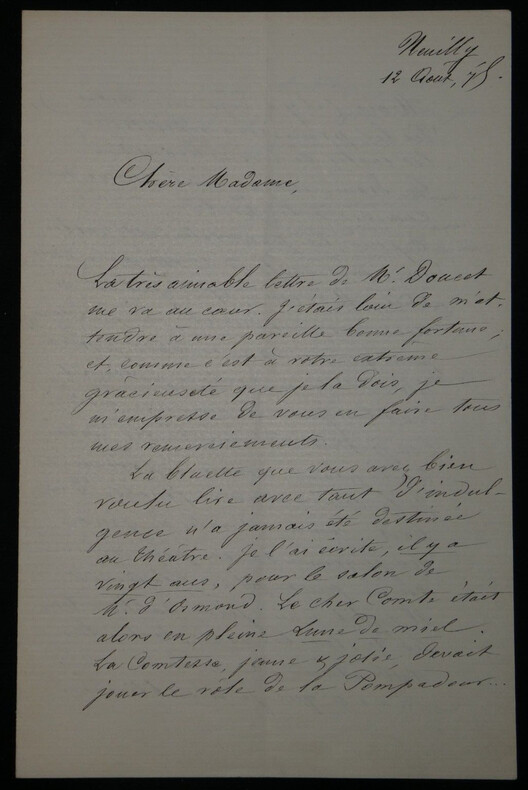 Neuilly
12 Août, 75.
Chère Madame,
La très aimable lettre de Mr. Doucet
me va au cœur. J'étais loin de m'at-
tendre à une pareille bonne fortune;
et, comme c'est à votre extrème
grâcieuseté que je la dois, je
m'empresse de vous en faire tous
mes remerciements.
La bluette que vous avez bien
voulu lire avec tant d'indul-
gence n'a jamais été destinée
au théâtre. Je l'ai écrite, il y a
vingt ans, pour le salon de
Mr. d'Osmond. Le cher Comte était
alors en pleine Lune de miel.
La Comtesse, jeune & jolie, devait
jouer le rôle de la Pompadour...